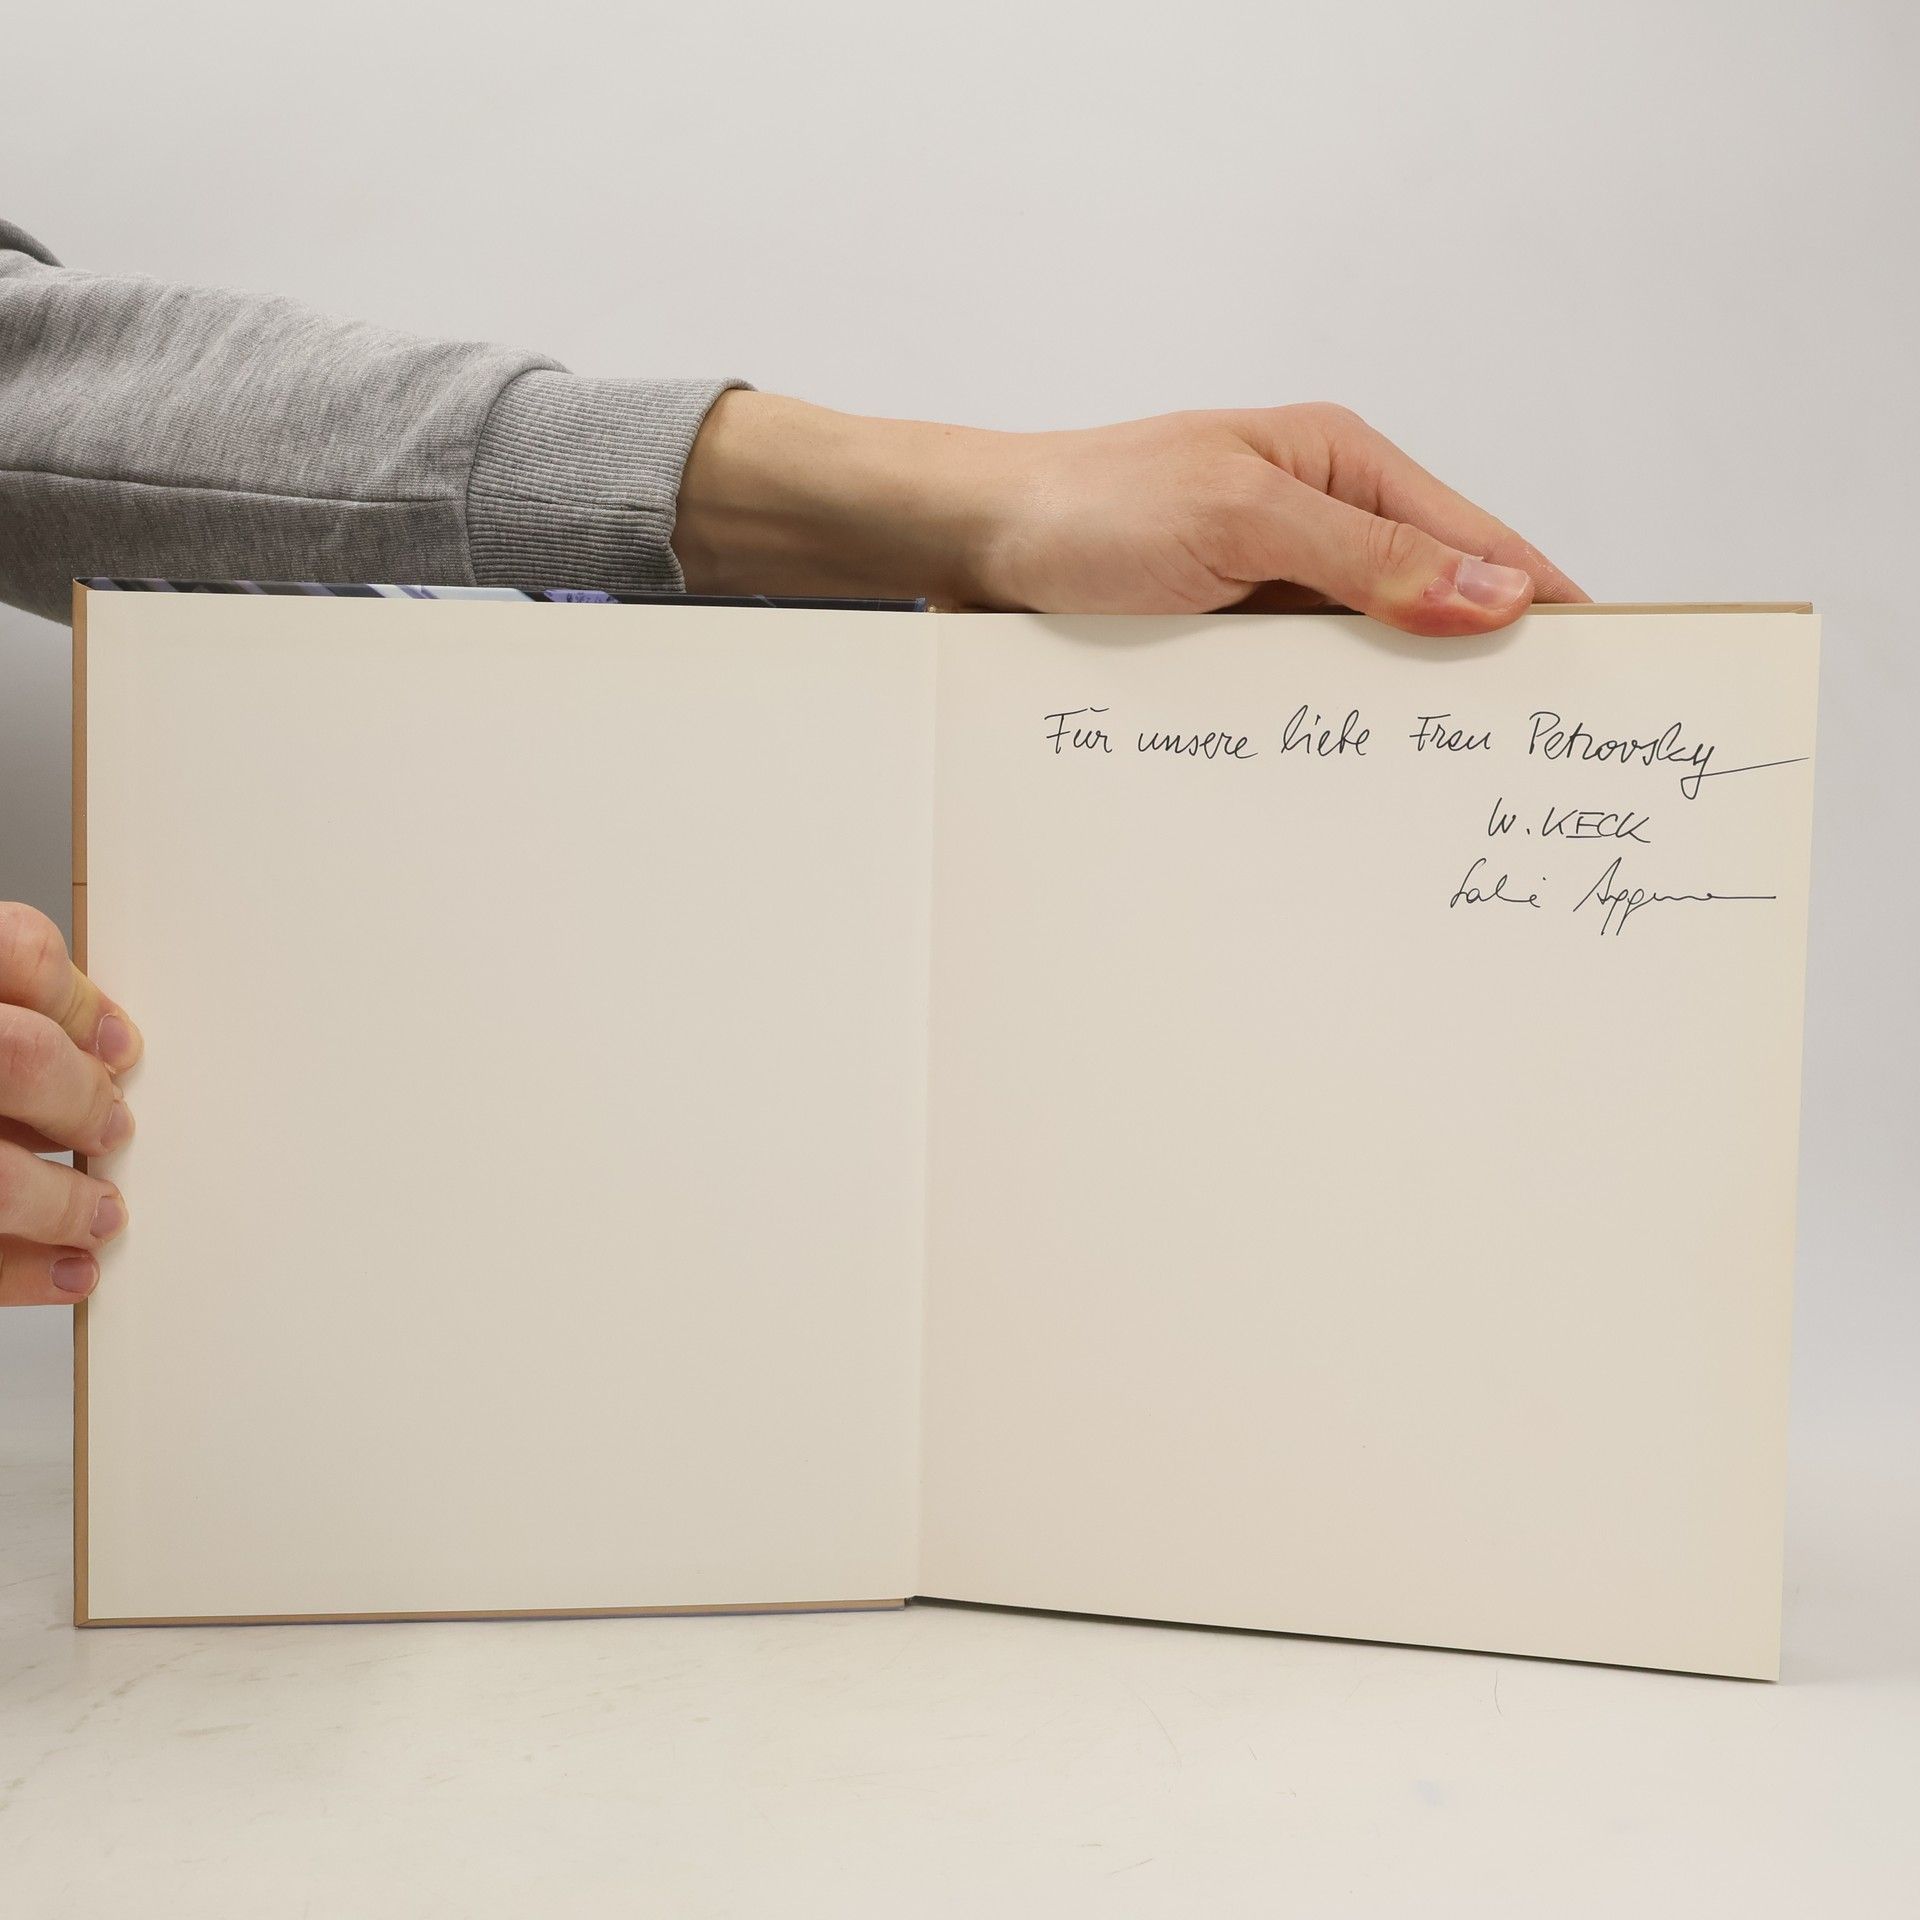 Für unsere liebe Frau Petrovsky
W. KECK